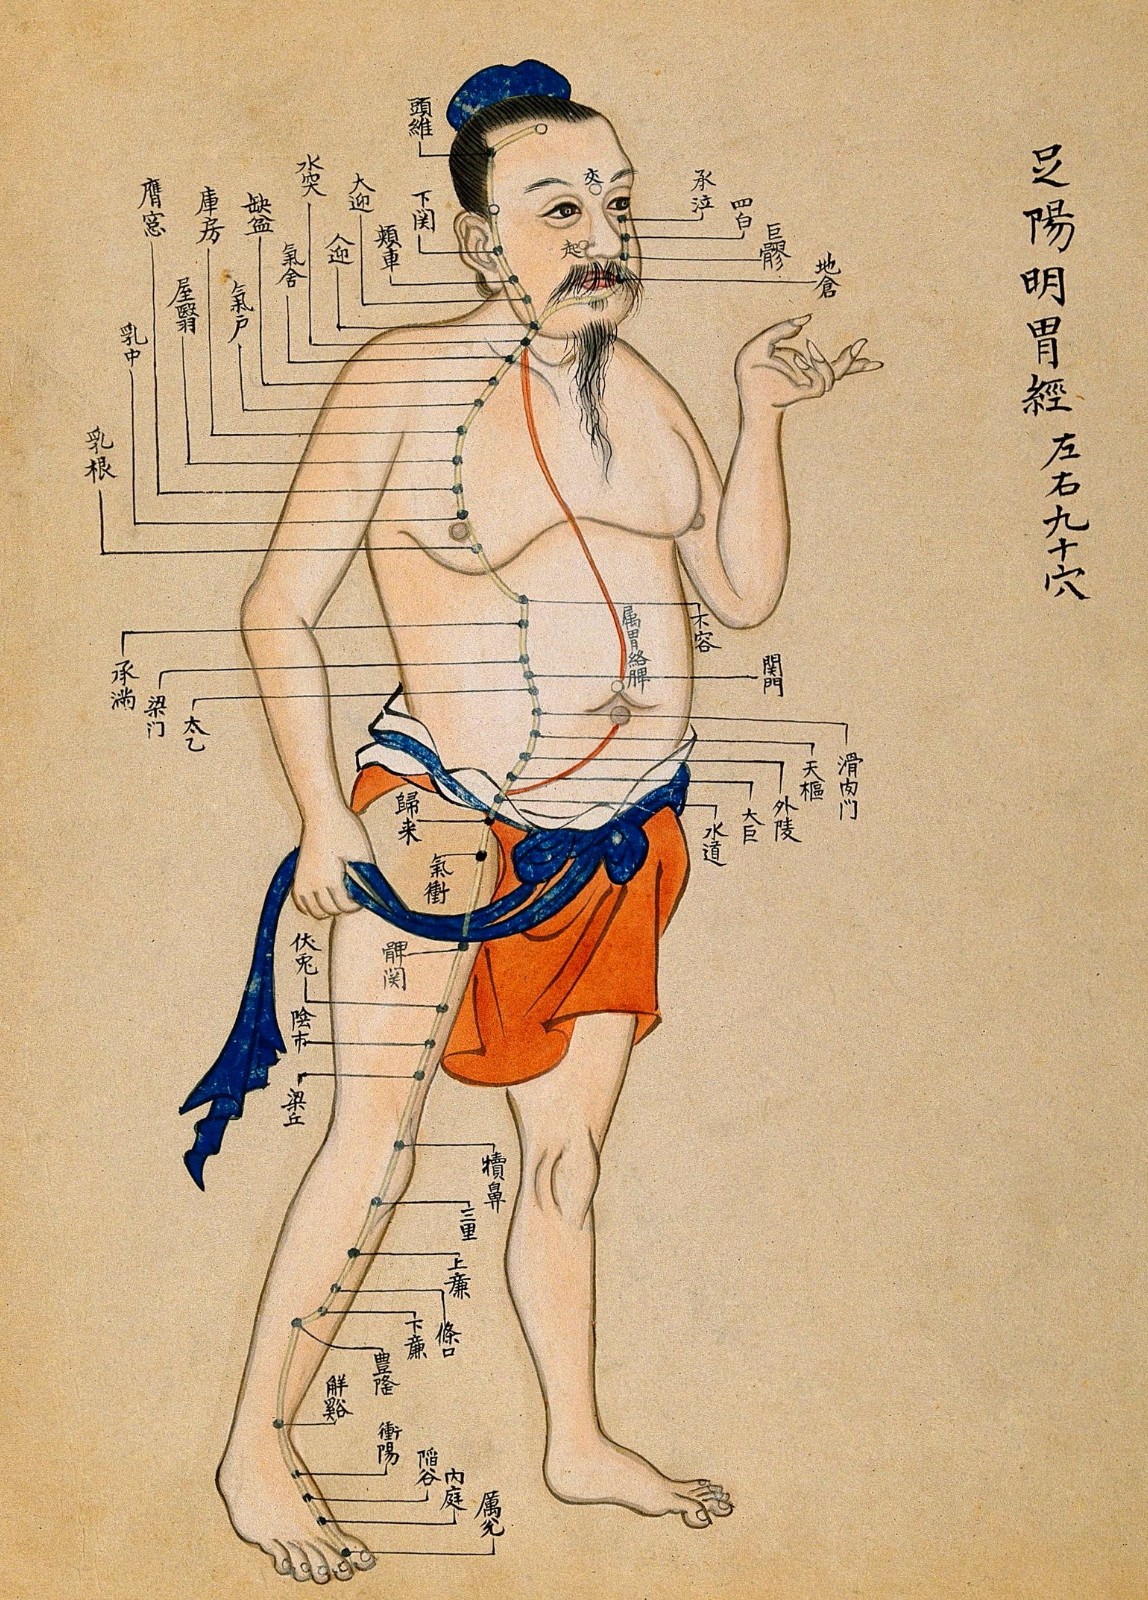 足陽明胃經
左右九十穴
頭維
下関
頬車
大迎
人迎
水突
氣舎
缺盆
氣戸
庫房
屋翳
膺窓
乳中
乳根
交
起
承泣
四白
巨髎
地倉
不容
承満
梁门
関門
太乙
属胃絡脾
滑肉门
天樞
外陵
大巨
水道
歸来
氣衝
髀関
伏兎
陰市
梁丘
犢鼻
三里
上廉
條口
下廉
豊隆
解谿
衝陽
陷谷
内庭
厲兊